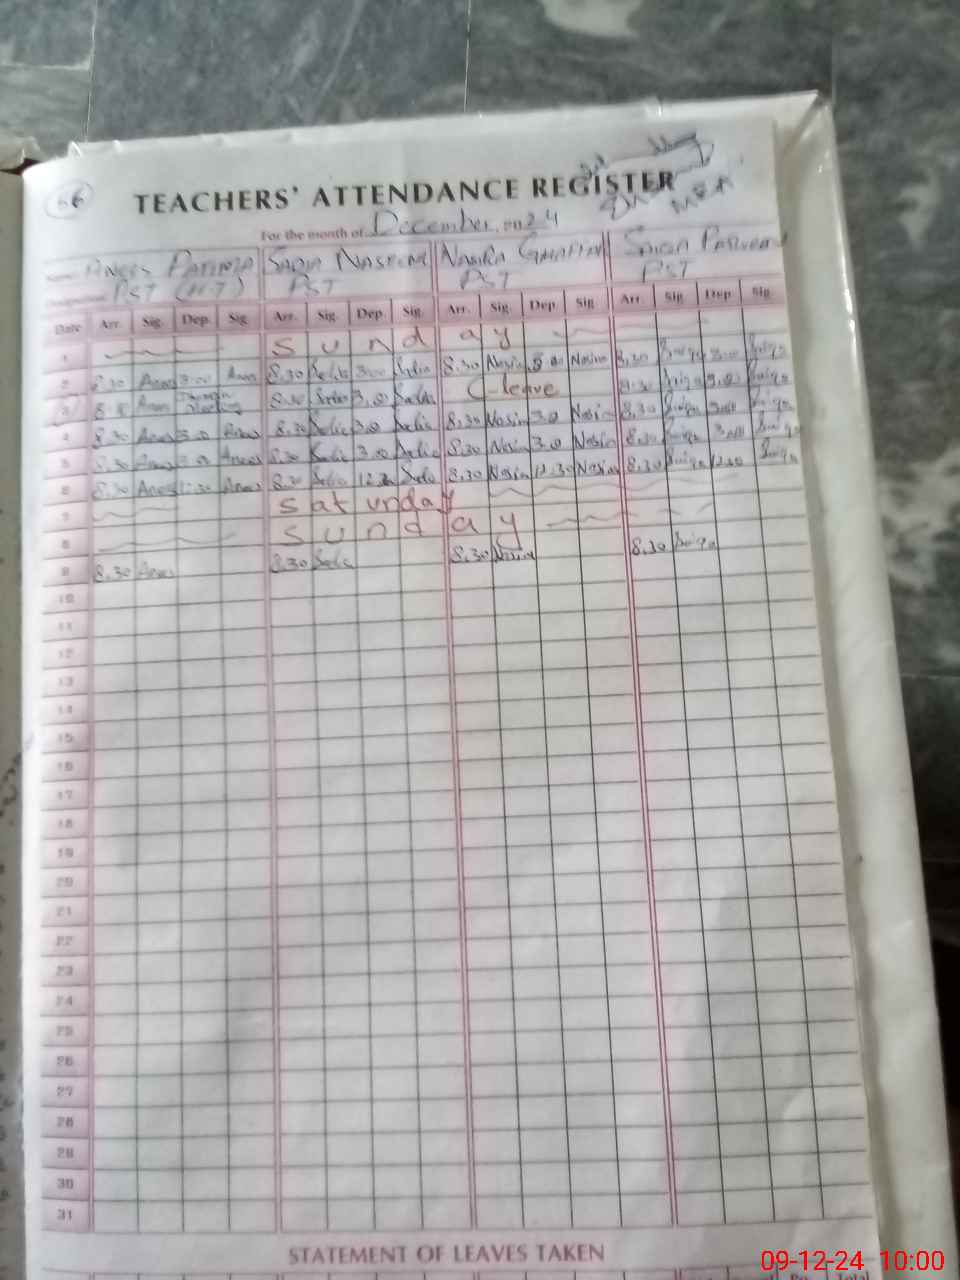 66
TEACHERS' ATTENDANCE REGISTER
For the month of December, 2024
Anees Fatima Sadia Nasreen Namra Saiqa Parveen
PST (H.T) PST PST PST
Date Arr. Sig. Dep. Sig. Arr. Sig. Dep. Sig. Arr. Sig. Dep. Sig. Arr. Sig. Dep. Sig.
1 Sunday
2 8.30 Anees 3.00 Anees 8.30 Sadia 3.00 Sadia 8.30 3.00 8.30 Saiqa 3.00 Saiqa
3 8.30 Anees 8.30 Sadia 3.00 Sadia C-leave 8.30 Saiqa 3.00 Saiqa
4 8.30 Anees 3.00 Anees 8.30 Sadia 3.00 Sadia 8.30 3.00 8.30 Saiqa 3.00 Saiqa
5 8.30 Anees 3.00 Anees 8.30 Sadia 3.00 Sadia 8.30 3.00 8.30 Saiqa 3.00 Saiqa
6 8.30 Anees 12.30 Anees 8.30 Sadia 12.30 Sadia 8.30 12.30 8.30 Saiqa 12.30 Saiqa
7 Saturday
8 Sunday
9 8.30 Anees 8.30 Sadia 8.30 8.30 Saiqa
10
11
12
13
14
15
16
17
18
19
20
21
22
23
24
25
26
27
28
29
30
31
STATEMENT OF LEAVES TAKEN
09-12-24 10:00